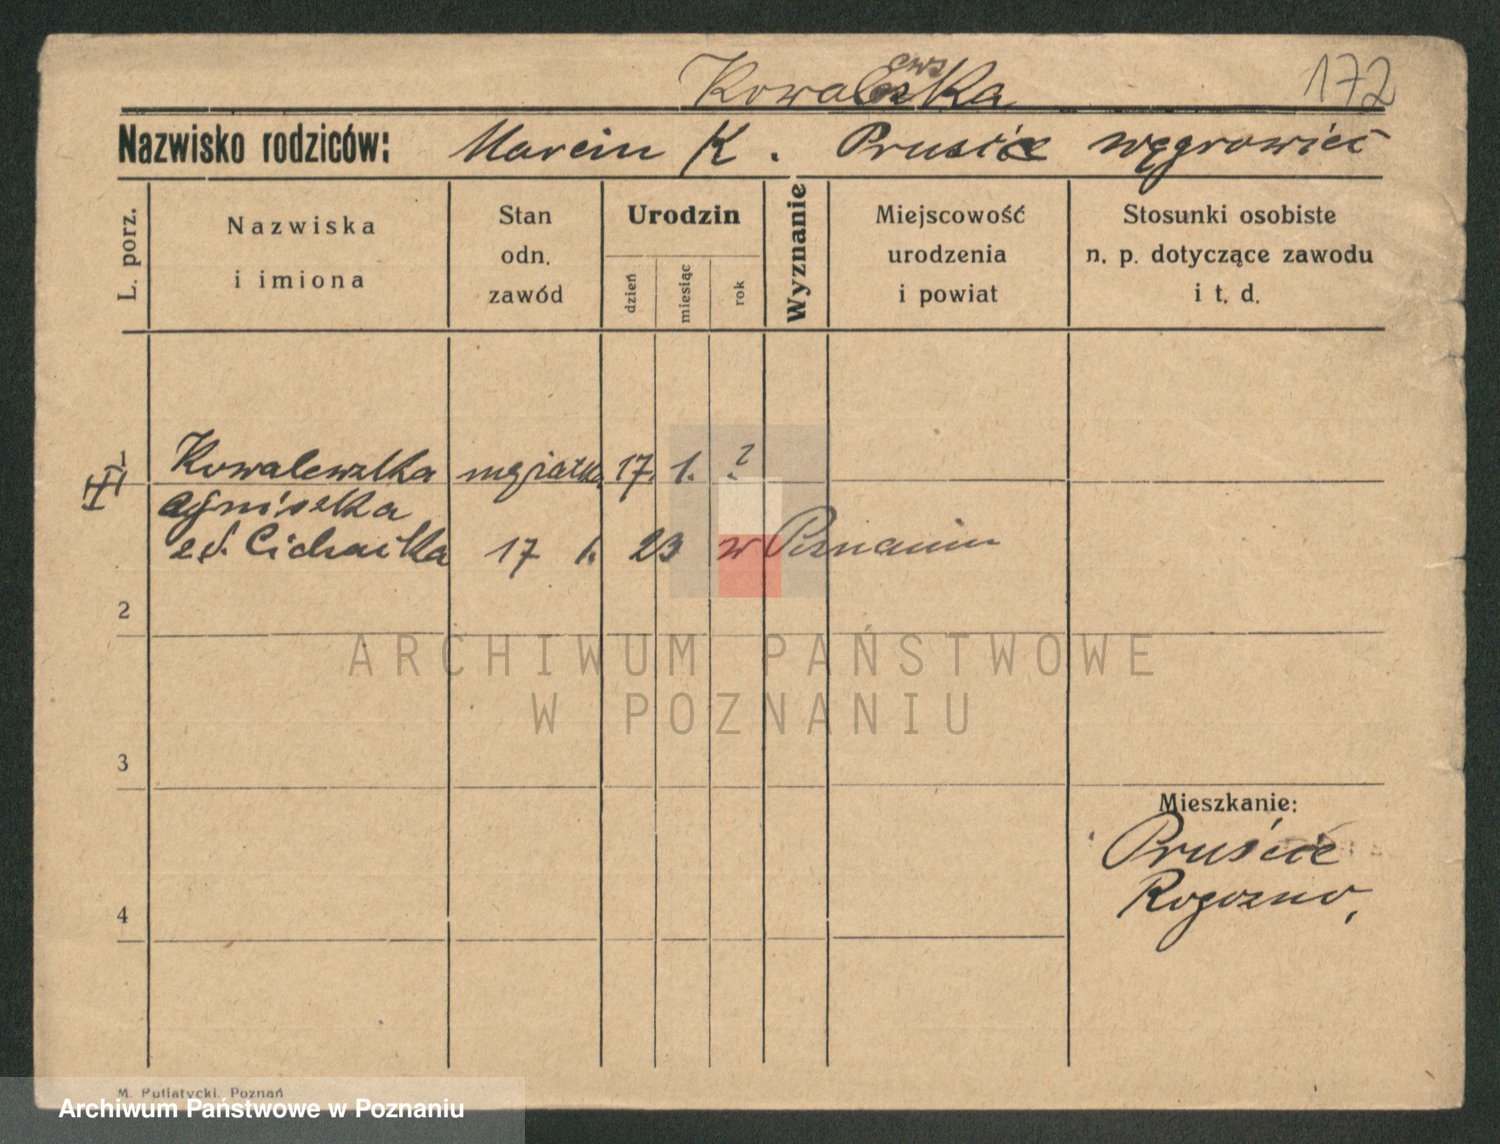 Kowalewska
172
Nazwisko rodziców: Marcin K. Pruście węgrowiec
L. porz.
Nazwiska
i imiona
Stan
odn.
zawód
Urodzin
dzień
miesiąc
rok
Wyznanie
Miejscowość
urodzenia
i powiat
Stosunki osobiste
n. p. dotyczące zawodu
i t. d.
1 Kowalewska mężatka 17. 1. ?
III
Agniszka
17 1. 23 w Poznaniu
2
3
Mieszkanie:
Pruście
Rogozno,
4
M. Putiatycki, Poznań
ARCHIWUM PAŃSTWOWE
W POZNANIU
Archiwum Państwowe w Poznaniu